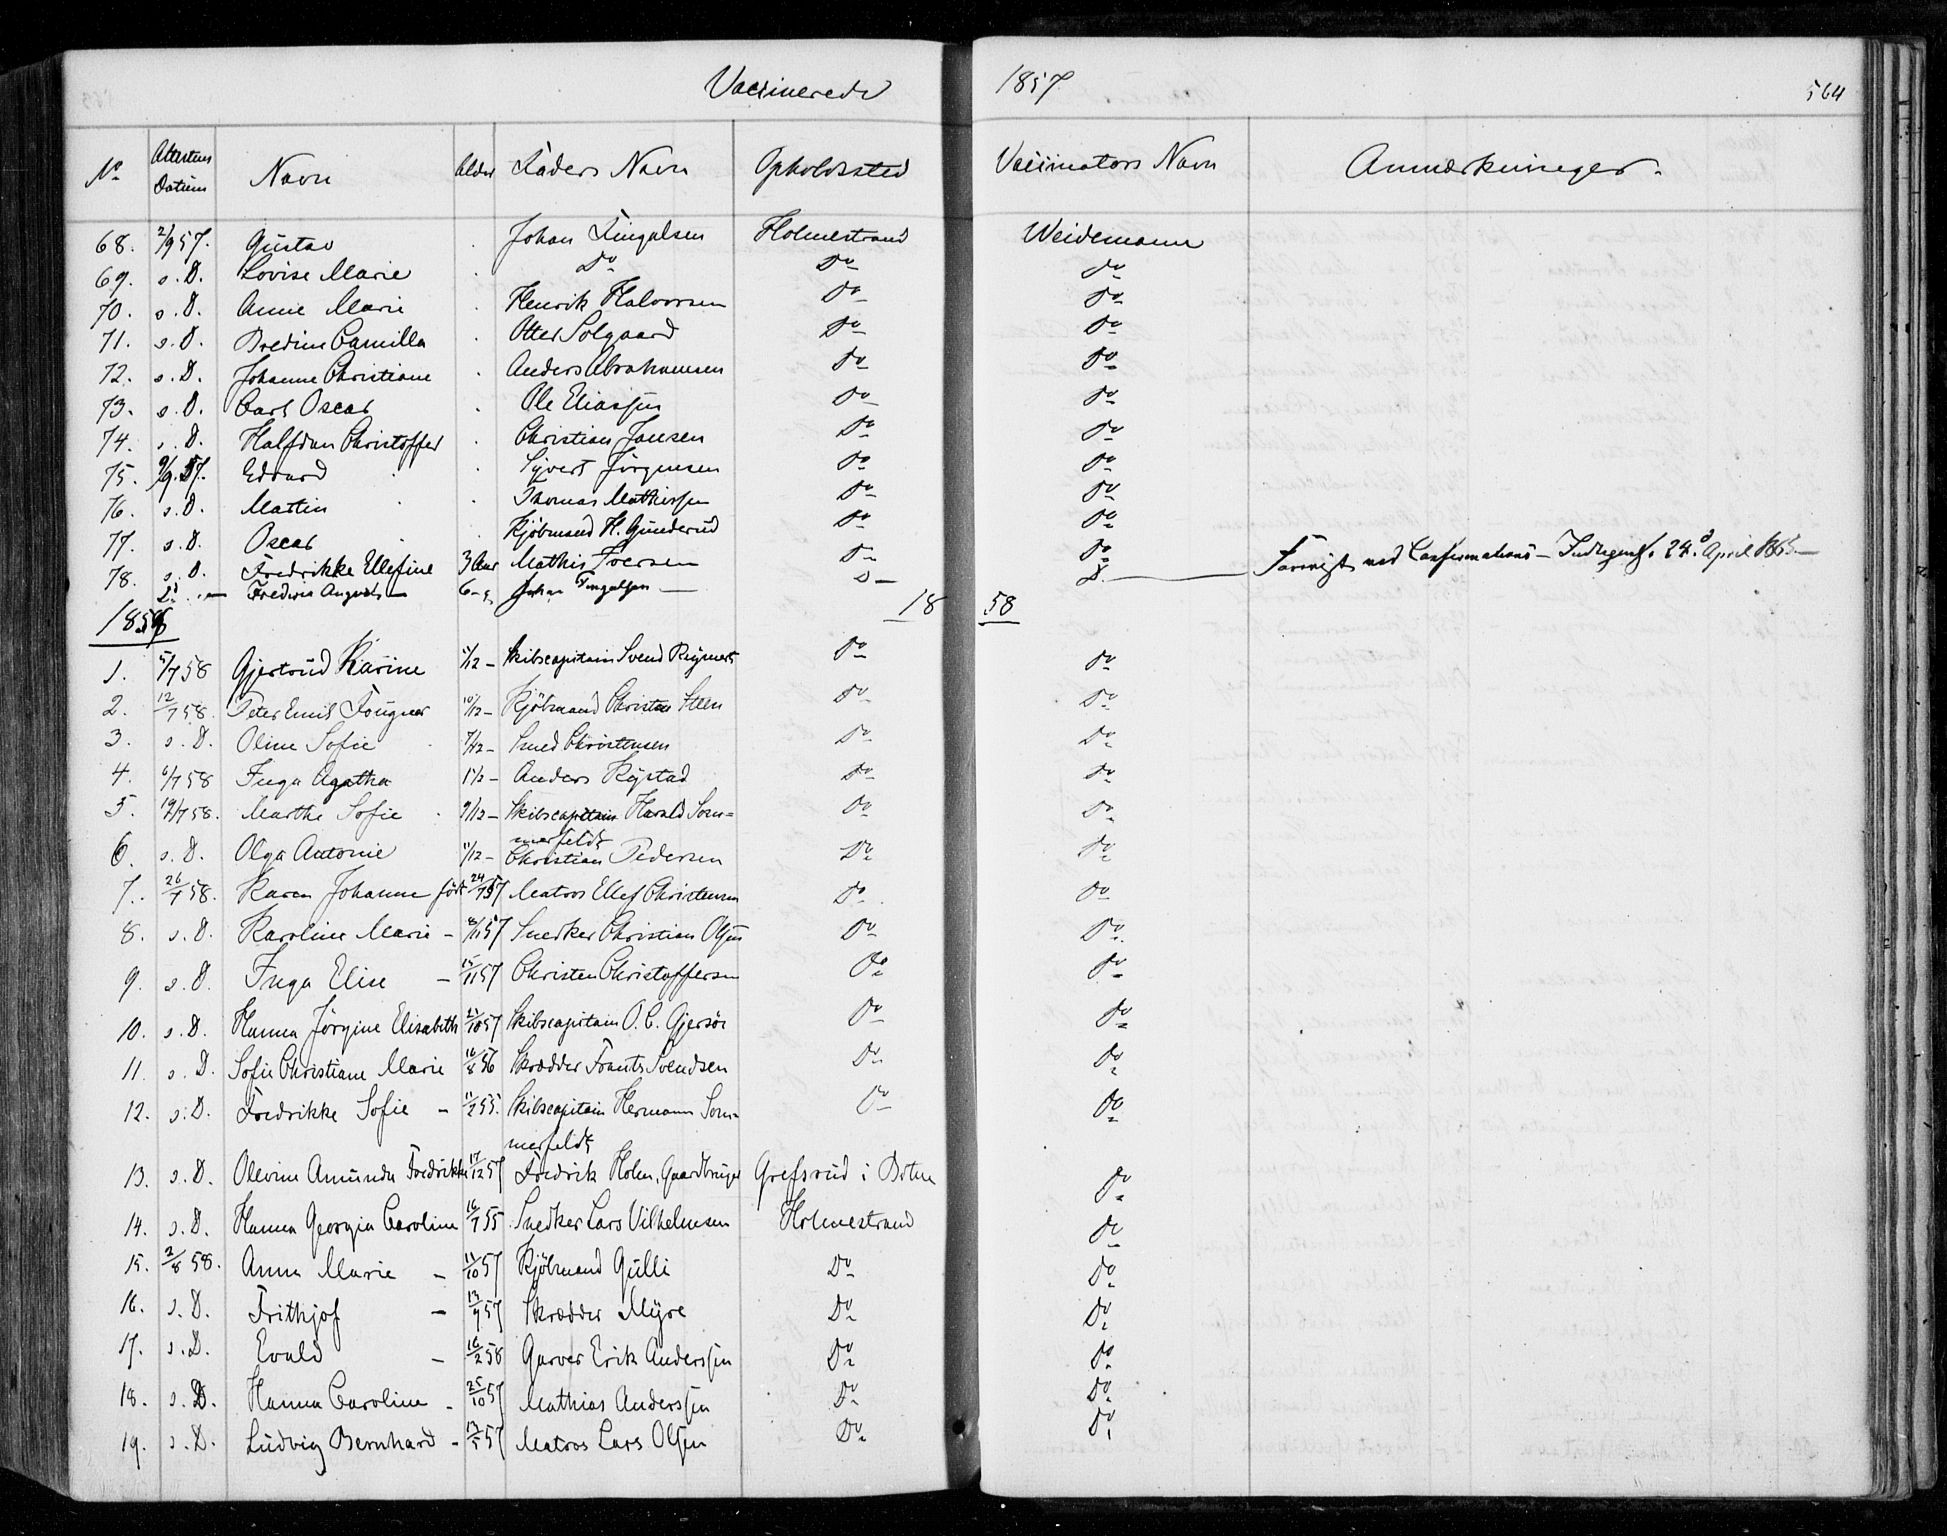 Vaccinerede 1857 564
No Attestens Datum Navn Alder Faders Navn Opholdssted Vaccinators Navn Anmærkninger.
68. 2/9 57. Gustav Johan Fingalsen Holmestrand Weidemann
69. s. D. Lovise Marie Do Do Do
70. s. D. Anne Marie Henrik Halvorsen Do Do
71. s. D. Bredine Camilla Otter Solgaard Do Do
72. s. D. Johanne Christiane Anders Abrahamsen Do Do
73. s. D. Carl Oscar Ole Eliassen Do Do
74. s. D. Halfdan Christoffer Christian Jansen Do Do
75. 9/9. 57. Edvard Syvert Jørgensen Do Do
76. s. D. Martin Thomas Mathiessen Do Do
77. s. D. Oscar Kjøbmand H. Gunderud Do Do
78. s. D. Fredrikke Ellefine 3 Aar Mathis Iversen Do Do
D. Fredrik August 6 - Johan Fingalsen D D Forevist ved Confirmations- 24. April
1858 18 58
1. 5/7 58 Gjertrud Karine 11/12 - Skibscapitain Svend Reymert Do Do
2. 12/7 58. Peter Emil Fougner 10/12 - Kjøbmand Christen Steen Do Do
3. s. D. Oline Sofie 7/12 - Smed Christensen Do Do
4. 6/7 58 Inga Agatha 1 1/2 - Anders Rystad Do Do
5. 19/7 58. Marthe Sofie 9/12 - Skibscapitain Harald Som=
merfeldt Do Do
6. s. D. Olga Antonie 11/12 - Christian Pedersen Do Do
7. 26/7 58. Karen Johanne født 24/7 57 Matros Ellef Christensen Do Do
8. s. D. Karoline Marie - 8/11 57 Snedker Christian Olsen Do Do
9. s. D Inga Elise - 15/11 57 Christen Christoffersen Do Do
10. s. D. Hanna Jørgine Elisabeth 21/10 57 Skibscapitain O. C. Gjersøe Do Do
11. s. D. Sofie Christiane Marie 16/8 56 Skrædder Frants Svendsen Do Do
12. s. D. Fredrikke Sofie - 11/2 55. Skibscapitain Hermann Som-
merfeldt Do Do
13. s. D. Olevine Amunda Fredrikke 17/12 57 Fredrik Holm, Gaardbruger Grefsrud i Botne Do
14. s. D. Hanna Georgia Caroline 16/7 55 Snedker Lars Vilhelmsen Holmestrand Do
15. 2/8 58. Anna Marie - 11/10 57 Kjøbmand Gulli Do Do
16. s. D. Frithjof - 13/9 57 Skrædder Myre Do Do
17. s. D. Evald - 16/2 58 Garver Erik Anderssen Do Do
18. s. D. Hanna Caroline - 25/10 57 Mathias Anderssen Do Do
19. s. D. Ludvig Bernhard - 13/5 57 Matros Lars Olsen Do Do